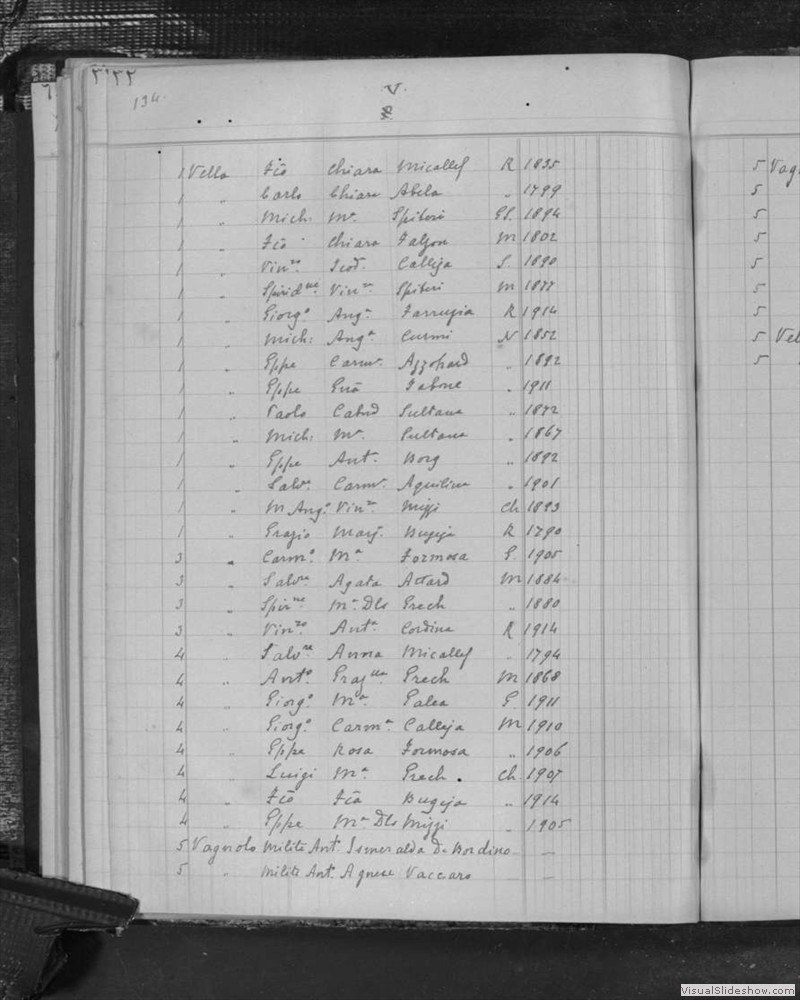 134.
V.
1 Vella Fco Chiara Micallef R 1835
1 " Carlo Chiara Abela " 1799
1 " Mich: Ma Spiteri GS. 1894
1 " Fco Chiara Falzon M 1802
1 " Vinzo Teod. Calleja S. 1890
1 " Spiridne Vinza Spiteri M 1877
1 " Giorgo Anga Farrugia R 1914
1 " Mich: Anga Curmi N 1852
1 " Gppe Carma Azzopard " 1892
1 " Gppe Gna Falzone " 1911
1 " Paolo Sultana " 1872
1 " Mich: Ma Sultana " 1867
1 " Gppe Anta Borg " 1892
1 " Salvre Carma Aquilina " 1901
1 " M Ango Vinza Mizzi Ch 1893
1 " Grazio Marg. Bugeja R 1790
3 " Carmo Ma Formosa G. 1905
3 " Salvre Agata Attard M 1884
3 " Spirne Ma Dls Grech " 1880
3 " Vinzo Anta Cordina R 1914
4 " Salvre Anna Micallef " 1794
4 " Anto Grazna Grech M 1868
4 " Giorgo Ma Galea G. 1911
4 " Giorgo Carma Calleja M 1910
4 " Gppe Rosa Formosa " 1906
4 " Luigi Ma Grech. Ch. 1907
4 " Fco Fca Bugeja " 1914
4 " Gppe Ma Dls Mizzi " 1905
5 Vagnolo Milite Ant. Ismeralda De Bordino —
5 " Milite Ant. Agnese Vaccaro —
5 Vag
5
5
5
5
5
5
5 Vel
5
VisualSlideshow.com